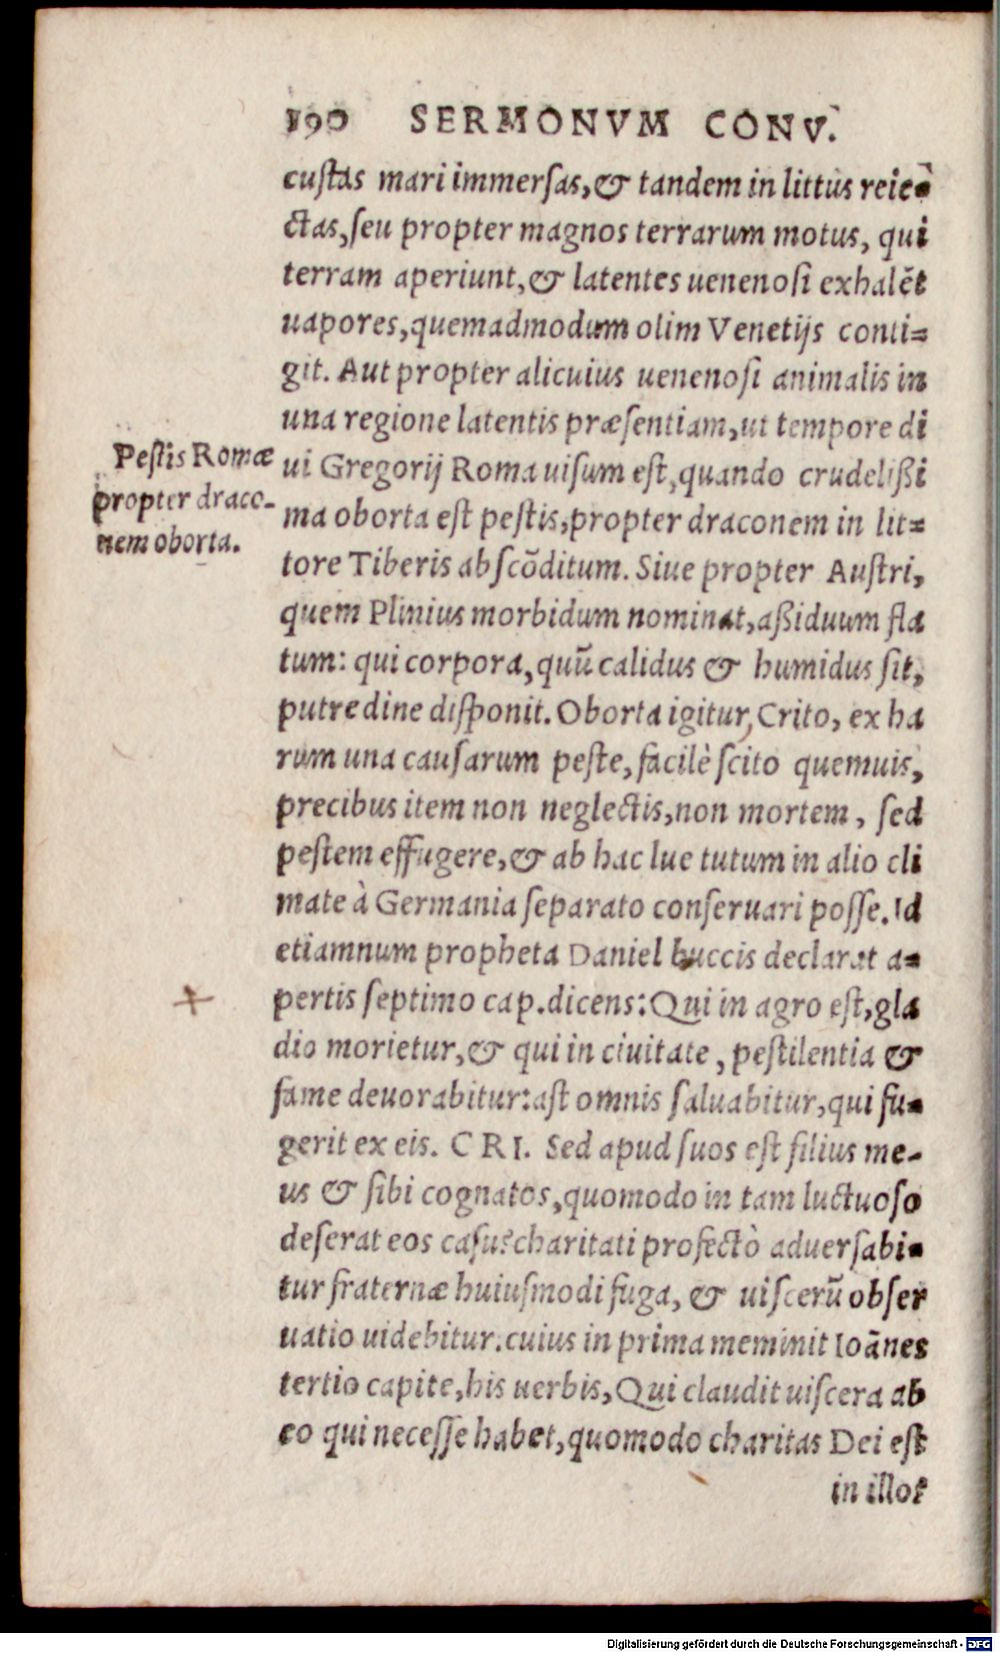 190 SERMONVM CONV.
custas mari immersas, & tandem in littus reie=
ctas, seu propter magnos terrarum motus, qui
terram aperiunt, & latentes uenenosi exhalēt
uapores, quemadmodum olim Venetijs conti=
git. Aut propter alicuius uenenosi animalis in
una regione latentis præsentiam, ut tempore di
Pestis Romæ
propter draco-
nem oborta.
ui Gregorij Roma uisum est, quando crudelißi
ma oborta est pestis, propter draconem in lit=
tore Tiberis abscōditum. Siue propter Austri,
quem Plinius morbidum nominat, aßiduum fla
tum: qui corpora, quū calidus & humidus sit,
putredine disponit. Oborta igitur, Crito, ex ha
rum una causarum peste, facilè scito quemuis,
precibus item non neglectis, non mortem, sed
pestem effugere, & ab hac lue tutum in alio cli
mate à Germania separato conseruari posse. Id
etiamnum propheta Daniel buccis declarat a=
pertis septimo cap. dicens: Qui in agro est, gla
dio morietur, & qui in ciuitate, pestilentia &
fame deuorabitur: ast omnis saluabitur, qui fu=
gerit ex eis. CRI. Sed apud suos est filius me-
us & sibi cognatos, quomodo in tam luctuoso
deserat eos casu? charitati profectò aduersabi=
tur fraternæ huiusmodi fuga, & uiscerū obser
uatio uidebitur. cuius in prima meminit Ioānes
tertio capite, his uerbis, Qui claudit uiscera ab
eo qui necesse habet, quomodo charitas Dei est
in illo?
Digitalisierung gefördert durch die Deutsche Forschungsgemeinschaft - DFG